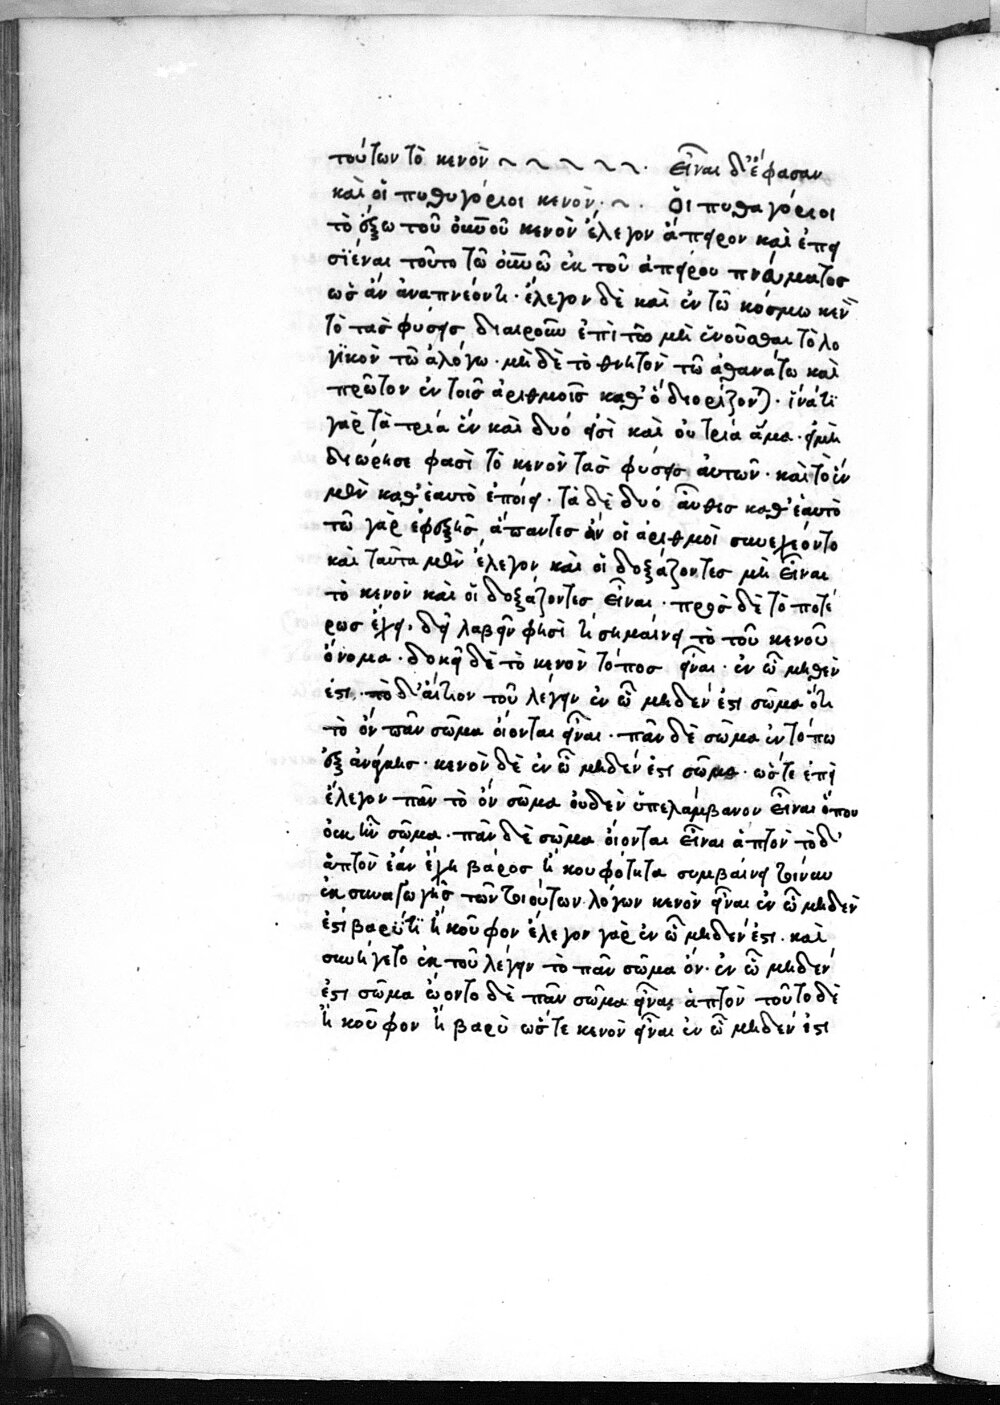 τούτων τὸ κενὸν ~ ~ ~ ~ ~ . εἶναι δ' ἔφασαν
καὶ οἱ πυθυγόρειοι κενὸν · ~ . Ὁι πυθαγόρειοι
τὸ ἔξω τοῦ οὐνοῦ κενὸν ἔλεγον ἄπειρον καὶ ἐπει
σϊέναι τοῦτο τῶ οὐνῶ ἐκ τοῦ ἀπείρου πνεύματος
ὡς ἂν ἀναπνέοντι · ἔλεγον δὲ καὶ ἐν τῶ κόσμω κεν
τὸ τὰς φύσεις διαιροῦν ἐπὶ τῶ μὴ ἑνοῦσθαι τὸ λο
γϊκὸν τῶ ἀλόγω · μὴ δὲ τὸ θνητὸν τῶ ἀθανάτω καὶ
πρῶτον ἐν τοῖς ἀριθμοῖς καθ' ὃ διορίζονται · ἱνάτϊ
γὰρ τὰ τρία ἓν καὶ δυό εἰσὶ καὶ οὐ τρία ἅμα · εἰ μὴ
διώρησε φασὶ τὸ κενὸν τὰς φύσεις ἀυτῶν · καὶ τὸ ἓν
μὲν καθ' ἑαυτὸ ἐποίει · τὰ δὲ δυό αὖθις καθ' ἑαυτὸ
τῶ γὰρ ἐφεξῆς ἅπαντες ἂν οἱ ἀριθμοὶ συνεχέοντο
καὶ ταῦτα μὲν ἔλεγον καὶ οἱ δοξάζοντες μὴ εἶναι
τὸ κενὸν καὶ οἱ δοξάζοντες εἶναι · πρὸς δὲ τὸ ποτέ
ρως ἔχει · δεῖ λαβεῖν φησὶ τί σημαίνει τὸ τοῦ κενοῦ
ὄνομα · δοκεῖ δὲ τὸ κενὸν τόπος εἶναι · ἐν ὧ μηθὲν
ἐστι · τὸ δ' ἄιτιον τοῦ λέγειν ἐν ὧ μηδέν ἐστι σῶμα ὅτι
τὸ ὂν πᾶν σῶμα ὀίονται εἶναι · πᾶν δὲ σῶμα ἐν τόπω
ἐξ ἀνάγκης · κενὸν δὲ ἐν ὧ μηδέν ἐστι σῶμα · ὥστε ἐπεὶ
ἔλεγον πᾶν τὸ ὂν σῶμα ὀυδὲν ὑπελάμβανον εἶναι ὅπου
ὀκ ἦν σῶμα · πᾶν δὲ σῶμα ὀίονται εἶναι ἁπτὸν τὸ δ'
ἁπτὸν ἐάν ἔχη βάρος ἢ κουφότητα συμβαίνει τοίνυν
ἐκ συναγωγῆς τῶν τοιούτων λόγων κενὸν εἶναι ἐν ὧ μηδὲν
ἐστὶ βαρὺ τϊ ἢ κοῦφον ἔλεγον γὰρ ἐν ὧ μηδέν ἐστι · καὶ
συνήγετο ἐκ τοῦ λέγειν τὸ πᾶν σῶμα ὂν · ἐν ὧ μηδέν
ἐστι σῶμα ὤοντο δὲ πᾶν σῶμα εἶναι ἁπτὸν τοῦτο δὲ
ἢ κοῦφον ἢ βαρὺ ὥστε κενὸν εἶναι ἐν ὧ μηδέν ἐστι